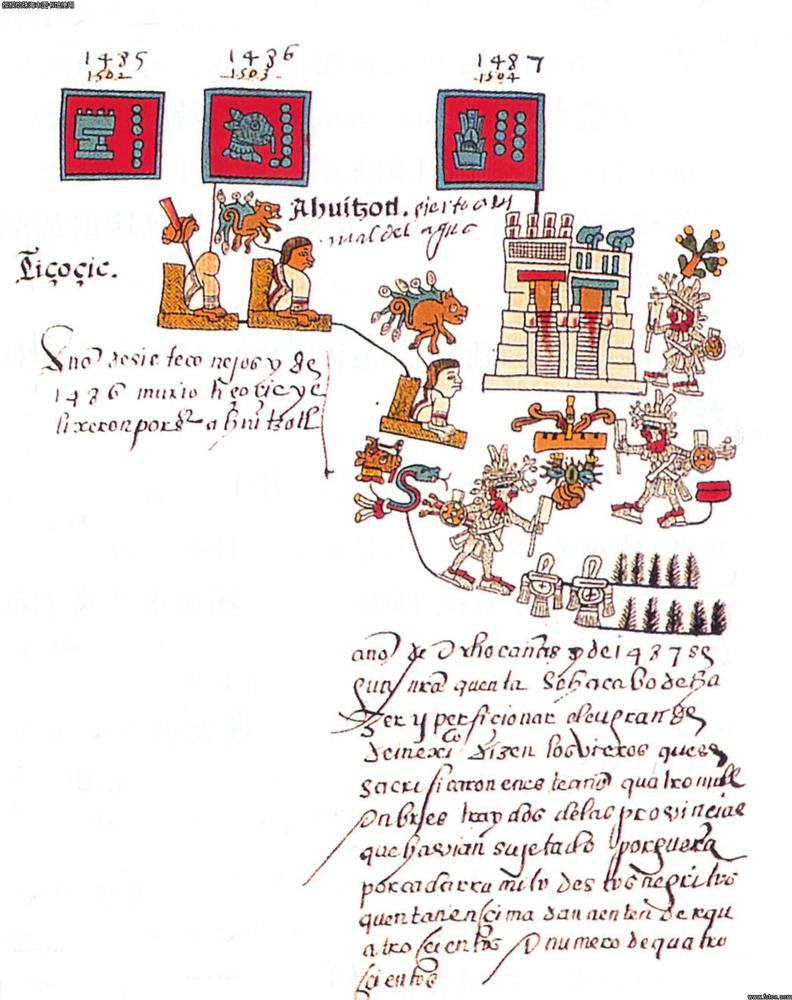 1485 1486 1487
1502 1503 1504
Ahuitzotl. cierto ani
mal del agua
Tiçoçic.
Año de siete conejos y de
1486 murio tiçoçic y e
lixeron por sr a ahuitzotl
año de ocho cañas y de 1487 se
gun nra quenta se hacabo de ha
zer y perficionar el cu grande
de mexico dizen los viejos que se
sacrificaron en este año quatro mill
onbres traydos de las provincias
que havian sujetado por guerra
por cada rramito destos negritos
que encima dan a entender qu
atro cientos numero de quatro
cientos
www.fotoe.com